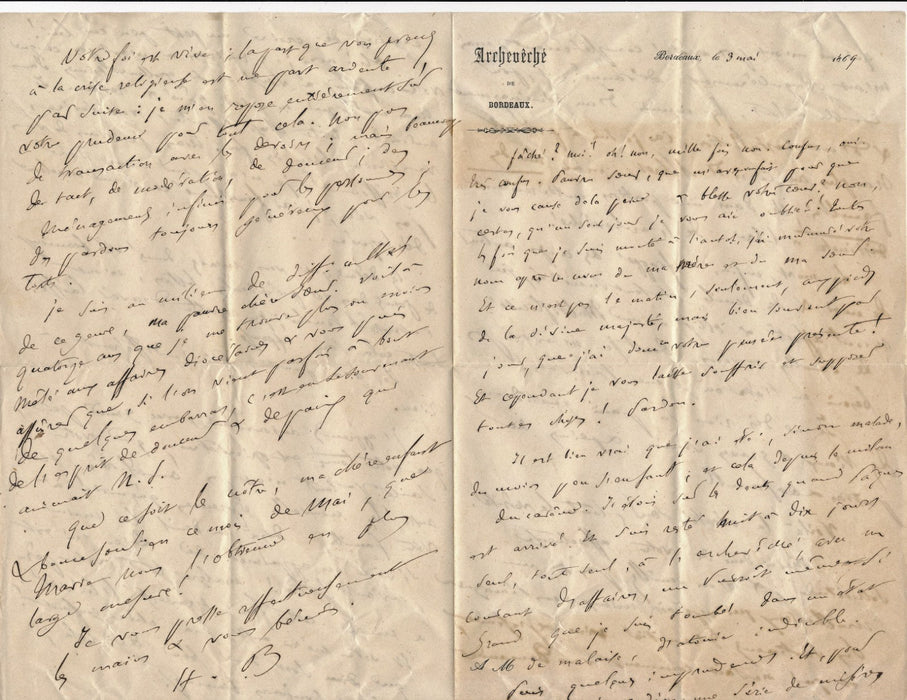 Archevêché
DE
BORDEAUX.
Bordeaux, le 3 mai 1869
fâché? moi! oh! non, mille fois non. Confus, oui
très confus. Pauvre sœur, que m'arrivait pour que
je vous cause de la peine blesse votre cœur? Non,
certes, qu'un seul jour je vous aie oubliée! Toutes
les fois que je suis monté à l'autel, j'ai murmuré votre
nom après le nom de ma mère et de ma sœur.
Et ce n'est pas le matin, seulement, aux pieds
de la divine majesté, mais bien souvent par
jour, que j'ai votre pensée présente!
Et cependant je vous laisse souffrir et supposer
toutes choses! Pardon.
Il est bien vrai que j'ai été, sinon malade,
du moins peu s'en faut; et cela depuis le milieu
du carême. J'étais sur les dents quand Pâques
est arrivé. Et suis resté huit à dix jours
seul, tout seul, à l'archevêché avec un
courant d'affaires, un
que je suis tombé dans un état
de malaise, d'atonie indicible.
quelques imprudences. Et, pour
une série de
Votre foi est vive; la part que vous prenez
à la crise religieuse est une part ardente
par suite: je m'en repose entièrement sur
votre prudence pour tout cela. Non pas
de transaction avec les devoirs; mais beaucoup
de tact, de modération, de douceur; des
ménagements infinis pour les personnes;
des pardons toujours généreux pour les
torts.
Je suis au milieu de difficultés
de ce genre, ma pauvre chère sœur. Voilà
quatorze ans que je me trouve plus ou moins
mêlé aux affaires diocésaines & vous puis
assurer que, si l'on vient parfois à bout
de quelques embarras, c'est en se souvenant
de l'esprit de douceur & de paix qui
animait N. S.
Que ce soit le nôtre, ma chère enfant
& demandons, en ce mois de Mai, que
Marie nous l'obtienne en plus
large mesure!
Je vous presse affectueusement
les mains & vous bénis.
H. B